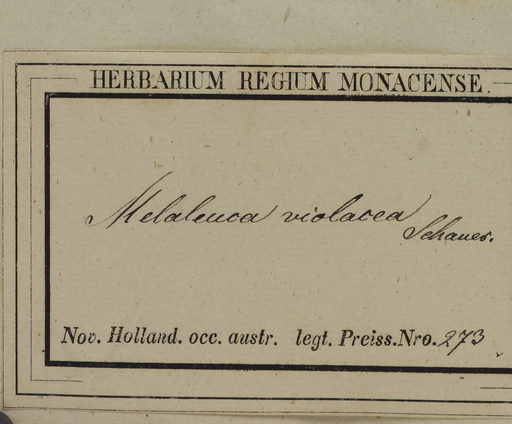 HERBARIUM REGIUM MONACENSE.
Melaleuca violacea
Schauer.
Nov. Holland. occ. austr. legt. Preiss. Nro. 273